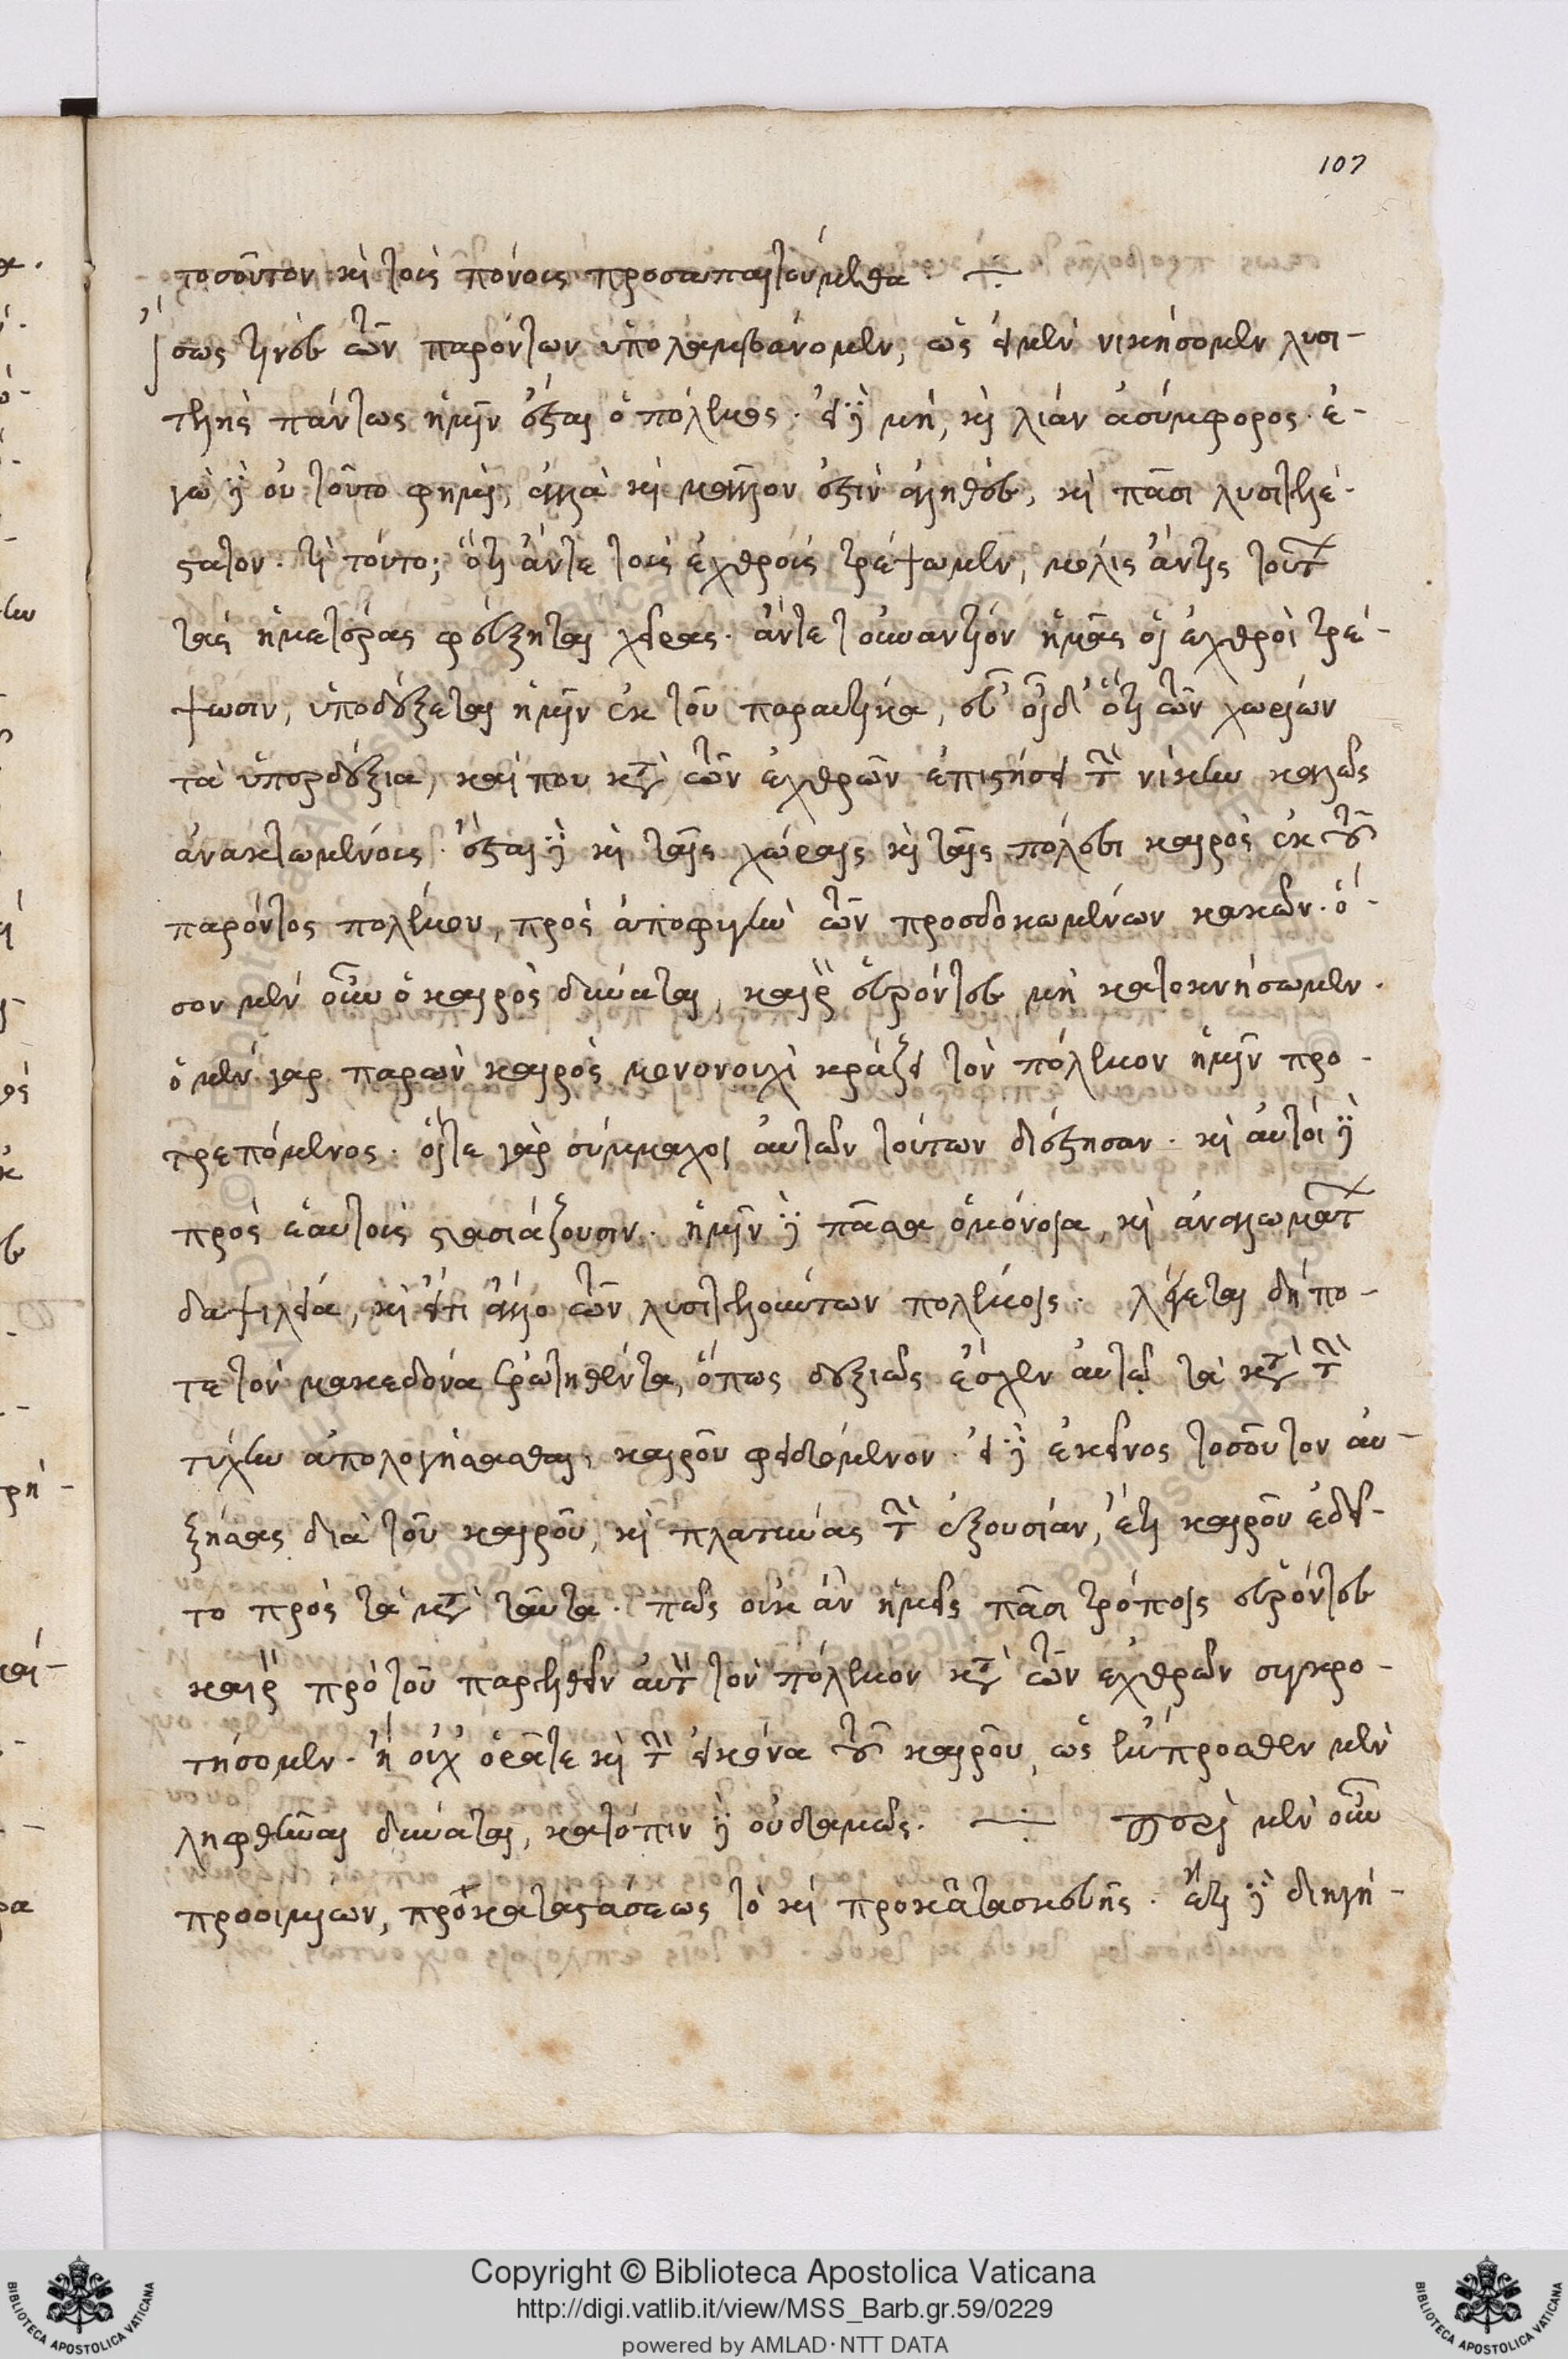 107
τοσοῦτον καὶ τοῖς πόνοις προσαπαντούμεθα.
ἴσως τινὲς τῶν παρόντων ὑπολαμβάνομεν, ὡς εἰ μὲν νικήσομεν λυσι-
τελὴς πάντως ἡμῖν ἔσται ὁ πόλεμος. εἰ δὲ μὴ, καὶ λίαν ἀσύμφορος. ἐ-
γὼ δὲ οὐ τοῦτο φημὶ, ἀλλὰ καὶ μᾶλλον ἐστὶν ἀληθὲς, καὶ πᾶσι λυσιτελέ-
στατον. τί τοῦτο; ὅτι ἄντε τοὺς ἐχθροὺς τρέψωμεν, μόλις ἄν τις τούτων
τὰς ἡμετέρας φεύξηται χεῖρας. ἄντε τοὐναντίον ἡμᾶς οἱ ἐχθροὶ τρέ-
ψωσιν, ὑποδέξεται ἡμῖν ἐκ τοῦ παραυτίκα, εὖ οἶδ' ὅτι τῶν χωρίων
τὰ, καί που κατὰ τῶν ἐχθρῶν ἐπιστήσει τὴν νίκην καλῶς
ἀνακτωμένοις. ἔσται δὲ καὶ ταῖς χώραις καὶ ταῖς πόλεσι καιρὸς ἐκ τοῦ
παρόντος πολέμου, πρὸς ἀποφυγὴν τῶν προσδοκωμένων κακῶν. ὅ-
σον μὲν οὖν ὁ καιρὸς δύναται, καιρὸν εὑρόντες μὴ κατοκνήσωμεν.
ὁ μὲν γὰρ παρὼν καιρὸς μονονουχὶ κράζει τὸν πόλεμον ἡμῖν προ-
τρεπόμενος. οἵ τε γὰρ σύμμαχοι αὐτῶν τούτων διέστησαν. καὶ αὐτοὶ δὲ
πρὸς ἑαυτοὺς στασιάζουσιν. ἡμῖν δὲ πᾶσα ὁμόνοια, καὶ ἀναλωμάτων
δαψίλεια, καὶ εἴ τι ἄλλο τῶν λυσιτελούντων πολέμοις. λέγεται δή πο-
τε τὸν μακεδόνα ἐρωτηθέντα, ὅπως δεξιῶς ἔσχεν αὐτῷ τὰ κατὰ τὴν
τύχην ἀπολογήσασθαι, καιροῦ φειδόμενον. εἰ δὲ ἐκεῖνος τοσοῦτον αὐ-
ξήσας διὰ τοῦ καιροῦ, καὶ πλατύνας τὴν ἐξουσίαν, ἔτι καιροῦ ἐδεῖ-
το πρὸς τὰ μετὰ ταῦτα. πῶς οὐκ ἂν ἡμεῖς πᾶσι τρόποις εὑρόντες
καιρὸν πρὸ τοῦ παρελθεῖν αὐτὸν τὸν πόλεμον κατὰ τῶν ἐχθρῶν συγκρο-
τήσομεν. ἢ οὐχ ὁρᾶτε καὶ τὴν εἰκόνα τοῦ καιροῦ, ὡς ἔμπροσθεν μὲν
ληφθῆναι δύναται, κατόπιν δὲ οὐδαμῶς. περὶ μὲν οὖν
προοιμίων, προκαταστάσεως τὲ καὶ προκατασκευῆς. ἔτι δὲ διηγή-
Copyright © Biblioteca Apostolica Vaticana
http://digi.vatlib.it/view/MSS_Barb.gr.59/0229
powered by AMLAD·NTT DATA
BIBLIOTECA APOSTOLICA VATICANA
BIBLIOTECA APOSTOLICA VATICANA